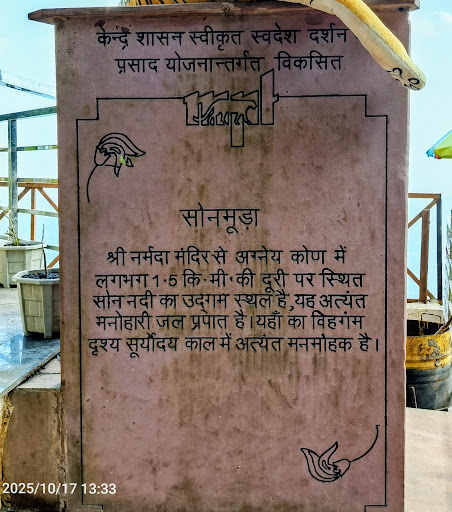 केन्द्र शासन स्वीकृत स्वदेश दर्शन
प्रसाद योजनान्तर्गत विकसित
सोनमूड़ा
श्री नर्मदा मंदिर से अग्नेय कोण में
लगभग 1·5 कि·मी·की दूरी पर स्थित
सोन नदी का उद्गम स्थल है,यह अत्यंत
मनोहारी जल प्रपात है।यहाँ का विहगंम
दृश्य सूर्योदय काल में अत्यंत मनमोहक है।
2025/10/17 13:33